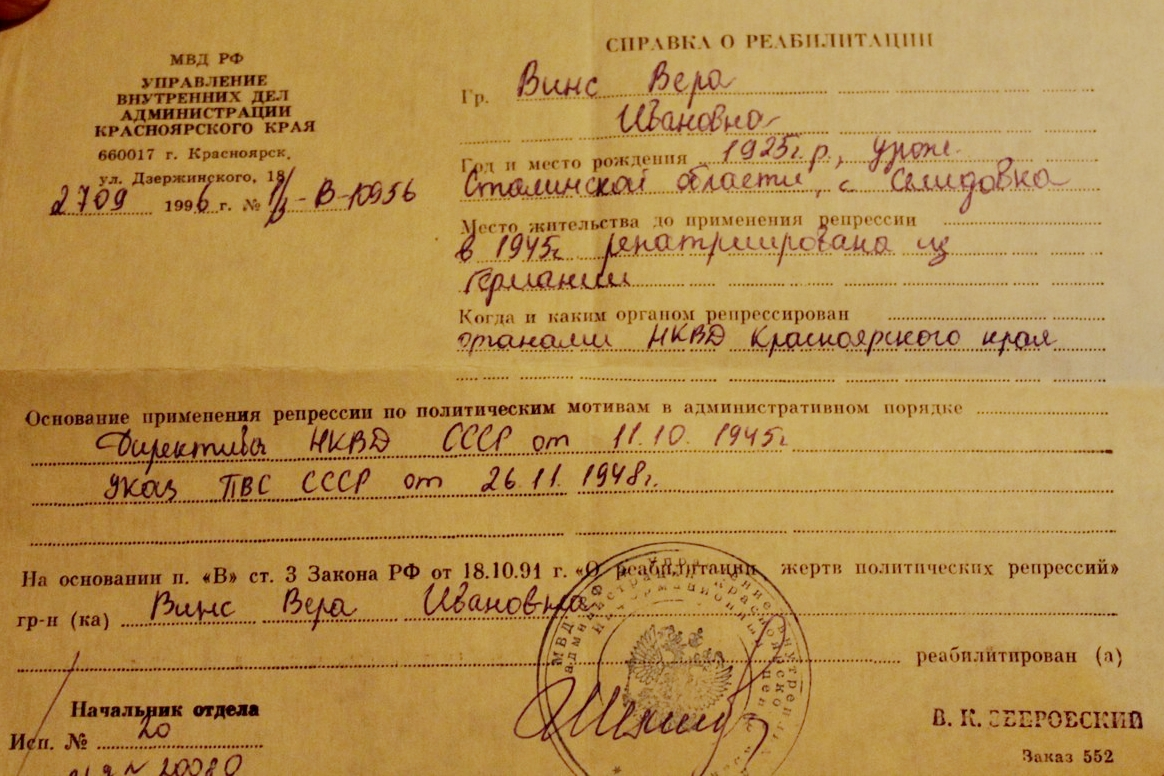 МВД РФ
УПРАВЛЕНИЕ
ВНУТРЕННИХ ДЕЛ
АДМИНИСТРАЦИИ
КРАСНОЯРСКОГО КРАЯ
660017 г. Красноярск,
ул. Дзержинского, 18
2709 1996 г. № -В-10956
СПРАВКА О РЕАБИЛИТАЦИИ
Гр. Винс Вера
Ивановна
Год и место рождения 1925г.р, урож.
Сталинской области, с Селидовка
Место жительства до применения репрессии
в 1945г репатриирована из
Германии
Когда и каким органом репрессирован
органами НКВД Красноярского края
Основание применения репрессии по политическим мотивам в административном порядке
Директива НКВД СССР от 11.10. 1945г
Указ ПВС СССР от 26.11.1948г.
На основании п. «В» ст. 3 Закона РФ от 18.10.91 г. «О реабилитации жертв политических репрессий»
гр-н (ка) Винс Вера Ивановна
реабилитирован (а)
Начальник отдела
Исп. № 20
В. К.
Заказ 552